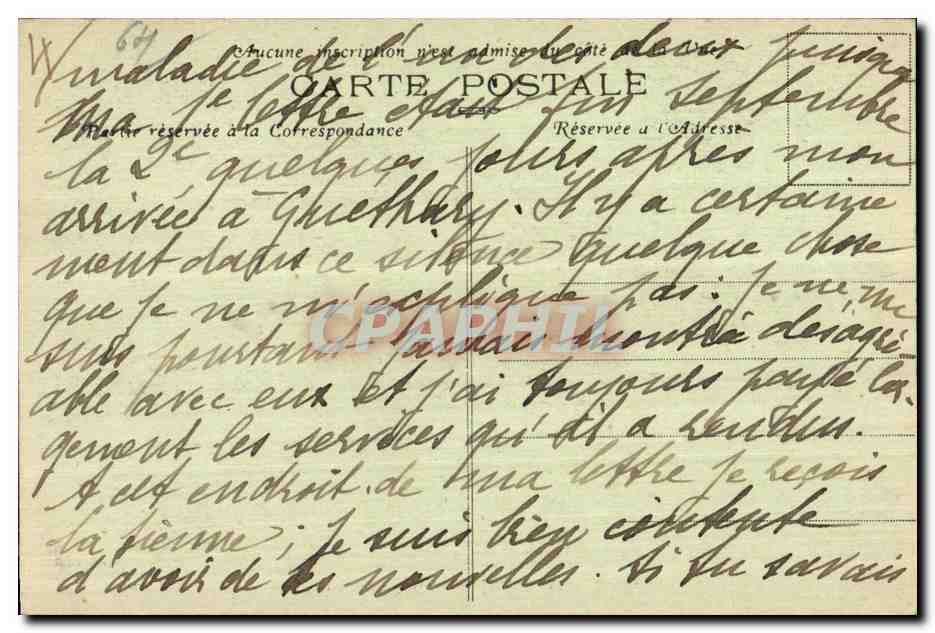 4) 64
Aucune inscription n'est admise du côté de la Vue
maladie de l'un des deux puisque
CARTE POSTALE
ma 1e lettre était fin septembre
Partie réservée à la Correspondance
Réservée a l'Adresse
la 2e quelques jours après mon
arrivée à Guéthary. Il y a certaine
ment dans ce silence quelque chose
que je ne m'explique pas. Je ne me
suis pourtant jamais montrée désagré
CPAPHIL
able avec eux et j'ai toujours payé lar-
gement les services qu'il a rendus.
A cet endroit de ma lettre je reçois
la tienne ; je suis bien contente
d'avoir de tes nouvelles. Si tu savais